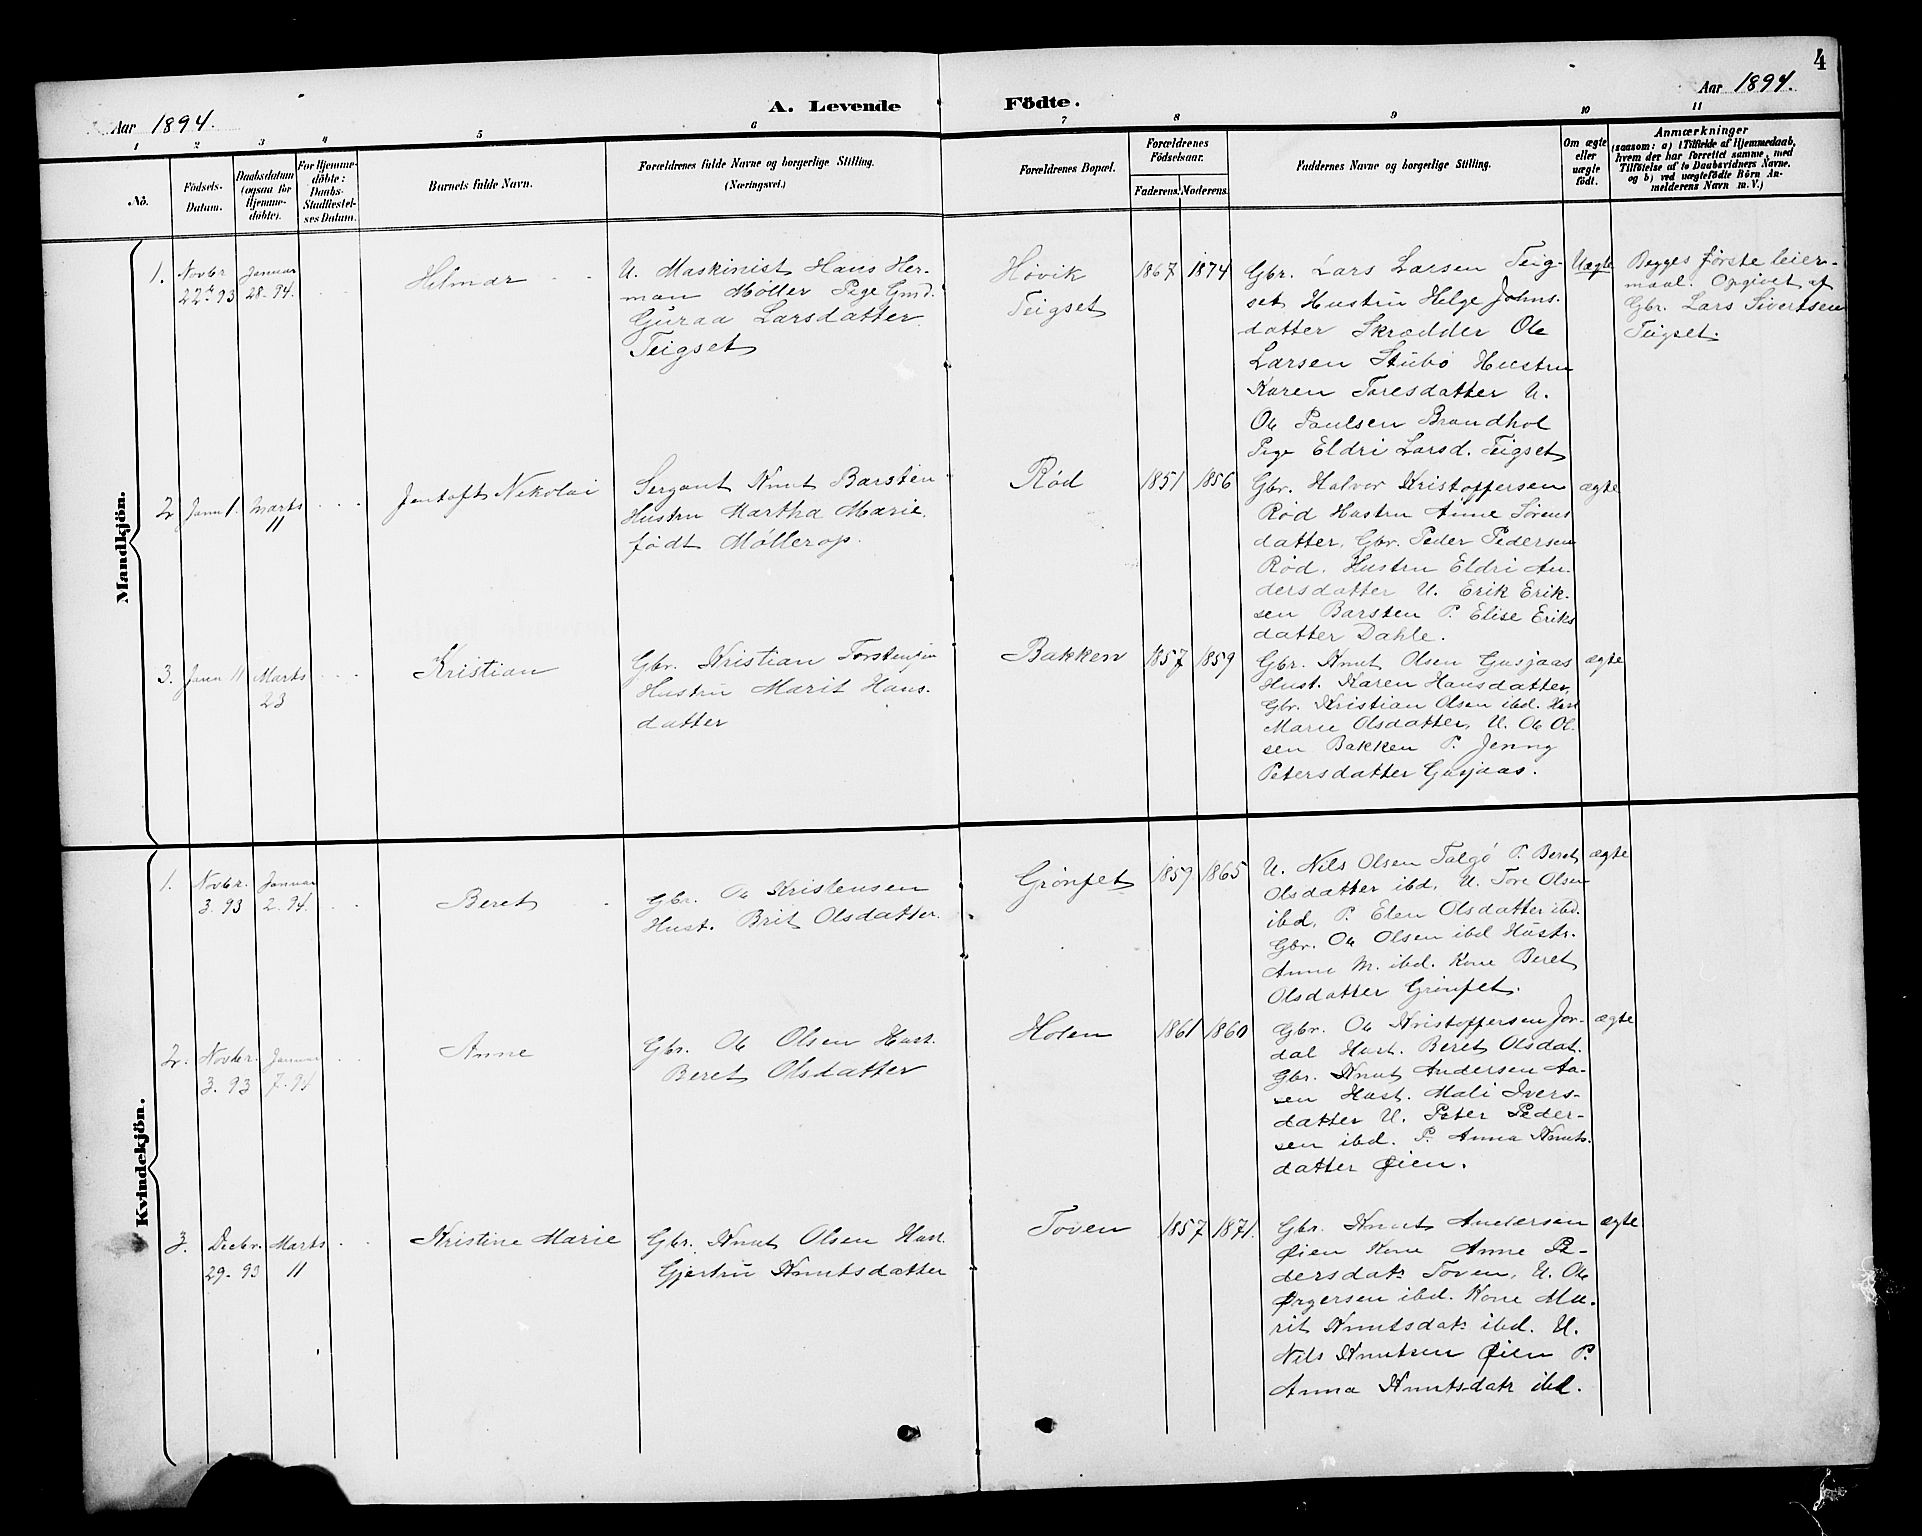 4
Aar 1894.
A. Levende Födte.
Aar 1894.
1 2 3 4 5 6 7 8 9 10 11
Nö.
Födsels-
Datum.
Daabsdatum
(ogsaa for
Hjemme-
döbte).
For Hjemme-
döbte:
Daabs-
Stadfæstel-
ses Datum.
Barnets fulde Navn.
Forældrenes fulde Navne og borgerlige Stilling.
(Næringsvei.)
Forældrenes Bopæl.
Forældrenes
Födselsaar.
Faderens. Moderens.
Faddernes Navne og borgerlige Stilling.
Om ægte
eller
uægte
födt.
Anmærkninger
(saasom: a) i Tilfælde af Hjemmedaab,
hvem der har forrettet samme, med
Tilföielse af to Daabsvidners Navne,
og b) ved uægtefödte Börn An-
melderens Navn m. V.)
Mandkjön.
1.
Novbr
22de 93
Januar
28-94.
Hilmar
U. Maskinist Hans Her-
man Møller Pige Gmd.
Guraa Larsdatter
Teigset
Høvik
Teigset
1867
1874
Gbr. Lars Larsen Teig-
set Hustru Helge Johns-
datter Skrædder Ole
Larsen Stubø Hustru
Karen Toresdatter U.
Ole Paulsen Brandhol
Pige Eldri Larsd. Teigset
Uægte
Begges første leier-
maal. Opgivet af
Gbr. Lars Sivertsen
Teigset.
2
Janu 1.
Marts
11
Jentoft Nikolai
Sergant Knut Barsten
Hustru Martha Marie
født Møllerop.
Rød
1851
1856
Gbr. Halvor Kristoffersen
Rød Hustru Anne Sørens
datter, Gbr. Peder Pedersen
Rød. Hustru Eldri An-
dersdatter U. Erik Erik-
sen Barsten P. Elise Eriks
datter Dahle.
ægte
3.
Janu 11
Marts
23
Kristian
Gbr. Kristian Torstensen
Hustru Marit Hans-
datter
Bakken
1857
1859
Gbr. Knut Olsen Gusjaas
Hust. Karen Hansdatter,
Gbr. Kristian Olsen ibd. Hust
Marie Olsdatter, U. Ole Ol-
sen Bakken P. Jenny
Petersdatter Gusjaas.
ægte
Kvindekjön.
1.
Novbr.
3. 93
Januar
2-94.
Beret
Gbr. Ole Kristensen
Hust. Brit Olsdatter.
Grønfet
1859
1865
U. Nils Olsen Talgø P. Beret
Olsdatter ibd, U. Tore Olsen
ibd, P. Elen Olsdatter ibd.
Gbr. Ole Olsen ibd Hustr.
Anne M. ibd. Kone Beret
Olsdatter Grønfet.
ægte
2.
Novbr.
3. 93
Januar
7-94
Anne
Gbr. Ole Olsen Hust.
Beret Olsdatter
Holen
1861
1860
Gbr. Ole Kristoffersen Jor-
dal Hust. Beret Olsdat.
Gbr. Knut Andersen Aa-
sen Hust. Mali Ivers-
datter U. Peter Peder-
sen ibd. P. Anna Knuts-
datter Øien.
ægte
3.
Decbr.
29-93
Marts
11
Kristine Marie
Gbr. Knut Olsen Hust.
Gjertru Knutsdatter
Toven
1857
1871.
Gbr. Knut Andersen
Øien Kone Anne Pe-
dersdatr Toven, U. Ole
Ørgersen ibd. Kone Ma-
rit Knutsdatr ibd. U.
Nils Knutsen Øien P.
Anna Knutsdatr ibd.
ægte